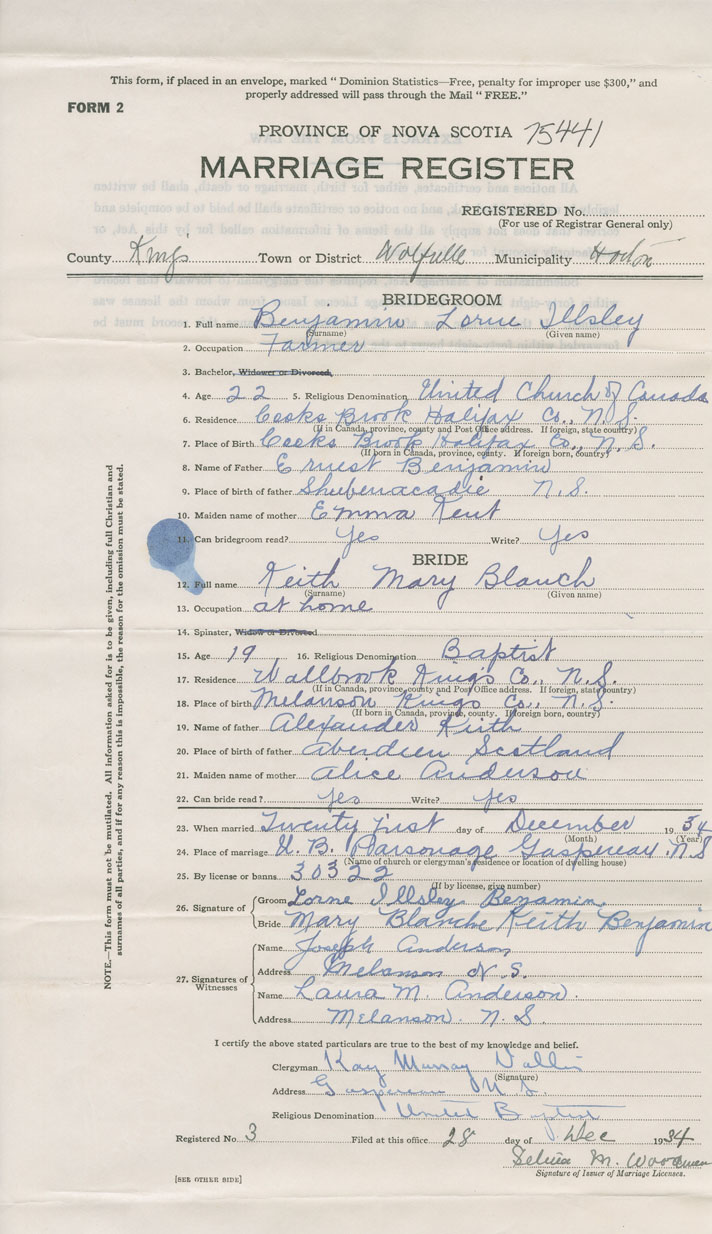 This form, if placed in an envelope, marked " Dominion Statistics—Free, penalty for improper use $300," and
properly addressed will pass through the Mail " FREE."
FORM 2
PROVINCE OF NOVA SCOTIA 75441
MARRIAGE REGISTER
REGISTERED No.
(For use of Registrar General only)
County King's Town or District Wolfville Municipality Horton
BRIDEGROOM
1. Full name Benjamin Lorne Illsley
(Surname) (Given name)
2. Occupation Farmer
3. Bachelor, Widower or Divorced,
4. Age 22 5. Religious Denomination United Church of Canada
6. Residence Cooks Brook Halifax Co., N.S.
(If in Canada, province, county and Post Office address. If foreign, state country)
7. Place of Birth Cooks Brook Halifax Co., N.S.
(If born in Canada, province, county. If foreign born, country)
8. Name of Father Ernest Benjamin
9. Place of birth of father Shubenacadie N.S.
10. Maiden name of mother Emma Kent
11. Can bridegroom read? Yes Write? Yes
BRIDE
12. Full name Keith Mary Blanch
(Surname) (Given name)
13. Occupation at home
14. Spinster, Widow or Divorced
15. Age 19 16. Religious Denomination Baptist
17. Residence Wallbrook Kings Co., N.S.
(If in Canada, province, county and Post Office address. If foreign, state country)
18. Place of birth Melanson Kings Co., N.S.
(If born in Canada, province, county. If foreign born, country)
19. Name of father Alexander Keith
20. Place of birth of father Aberdeen Scotland
21. Maiden name of mother Alice Anderson
22. Can bride read? Yes Write? Yes
23. When married Twenty first day of December 1934
(Month) (Year)
24. Place of marriage U. B. Parsonage Gaspereau N.S
(Name of church or clergyman's residence or location of dwelling house)
25. By license or banns 30322
(If by license, give number)
26. Signature of Groom Lorne Illsley Benjamin.
Bride Mary Blanche Keith Benjamin
27. Signatures of Witnesses
Name Joseph Anderson
Address Melanson N.S.
Name Laura M. Anderson.
Address Melanson. N.S.
I certify the above stated particulars are true to the best of my knowledge and belief.
Clergyman Murray
(Signature)
Address Gaspereau N S
Religious Denomination United Baptist
Registered No. 3 Filed at this office 28 day of Dec 1934
Selina M. Woodman
Signature of Issuer of Marriage Licenses.
[SEE OTHER SIDE]
NOTE.—This form must not be mutilated. All information asked for is to be given, including full Christian and
surnames of all parties, and if for any reason this is impossible, the reason for the omission must be stated.